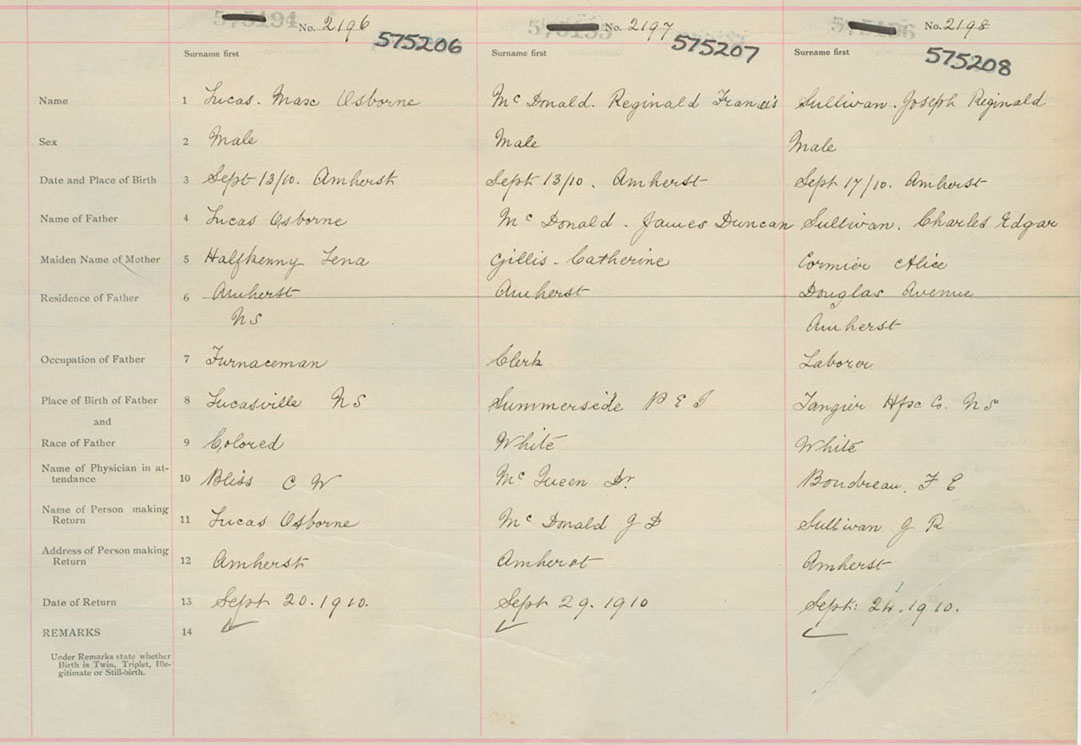 No. 2196 No. 2197 No. 2198
575206 575207 575208
Surname first Surname first Surname first
Name 1 Lucas. Marx Osborne McDonald. Reginald Francis Sullivan. Joseph Reginald
Sex 2 Male Male Male
Date and Place of Birth 3 Sept 13/10. Amherst Sept 13/10. Amherst Sept 17/10. Amherst
Name of Father 4 Lucas Osborne McDonald. James Duncan Sullivan. Charles Edgar
Maiden Name of Mother 5 Halfkenny Lena Gillis - Catherine Cormier Alice
Residence of Father 6 Amherst Amherst Douglas Avenue
NS Amherst
Occupation of Father 7 Furnaceman Clerk Laborer
Place of Birth of Father 8 Lucasville NS Summerside P E I Tangier Hfx Co. NS
and
Race of Father 9 Colored White White
Name of Physician in at-
tendance 10 Bliss C W McQueen Dr. Boudreau. F E
Name of Person making
Return 11 Lucas Osborne McDonald J D Sullivan J R
Address of Person making
Return 12 Amherst Amherst Amherst
Date of Return 13 Sept 20. 1910. Sept 29. 1910 Sept: 24. 1910.
REMARKS 14
Under Remarks state whether
Birth is Twin, Triplet, Ille-
gitimate or Still-birth.